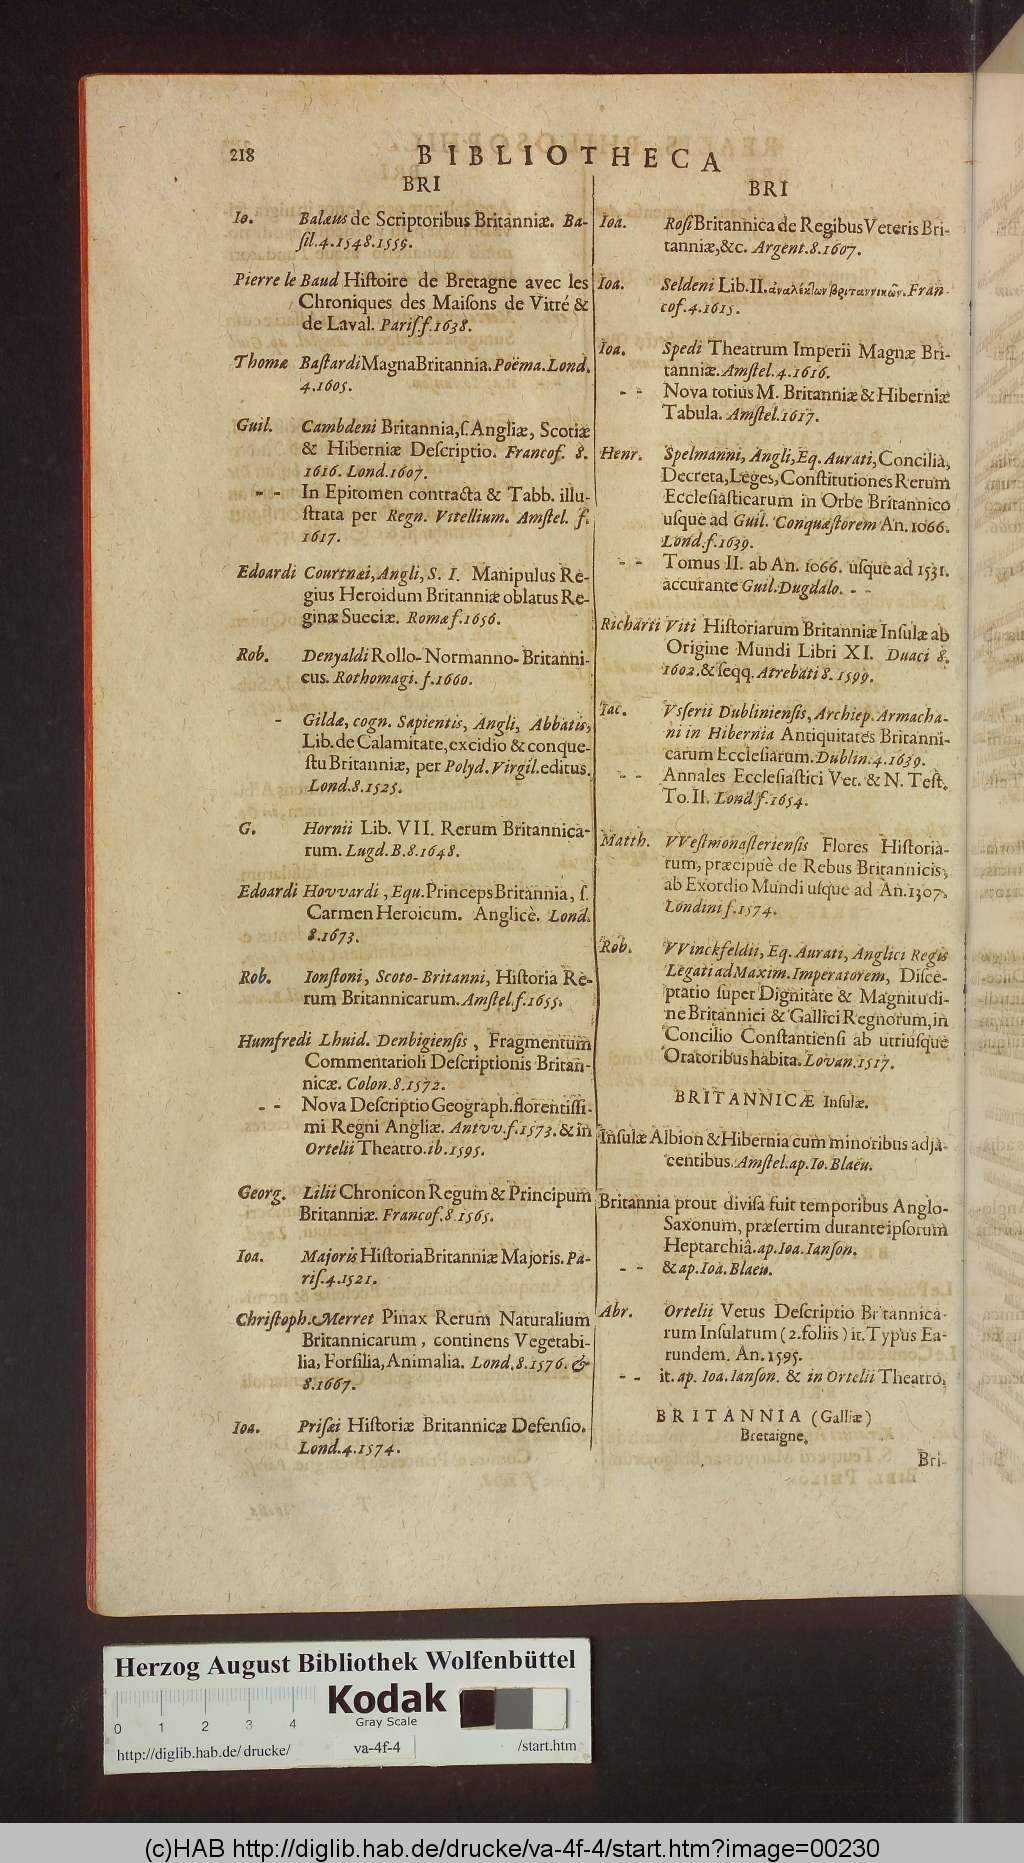 218
BIBLIOTHECA
BRI
Io. Balæus de Scriptoribus Britanniæ. Ba-
sil.4.1548.1559.
Pierre le Baud Histoire de Bretagne avec les
Chroniques des Maisons de Vitré &
de Laval. Paris.f.1638.
Thomæ Bastardi Magna Britannia. Poëma. Lond.
4.1605.
Guil. Cambdeni Britannia, s. Angliæ, Scotiæ
& Hiberniæ Descriptio. Francof. 8.
1616. Lond.1607.
- - In Epitomen contracta & Tabb. illu-
strata per Regn. Vitellium. Amstel. f.
1617.
Edoardi Courtnæi, Angli, S. I. Manipulus Re-
gius Heroidum Britanniæ oblatus Re-
ginæ Sueciæ. Romæ f.1656.
Rob. Denyaldi Rollo-Normanno-Britanni-
cus. Rothomagi. f.1660.
- Gildæ, cogn. Sapientis, Angli, Abbatis,
Lib. de Calamitate, excidio & conque-
stu Britanniæ, per Polyd. Virgil. editus.
Lond.8.1525.
G. Hornii Lib. VII. Rerum Britannica-
rum. Lugd.B.8.1648.
Edoardi Hovvardi, Equ. Princeps Britannia, s.
Carmen Heroicum. Anglicè. Lond.
8.1673.
Rob. Ionstoni, Scoto-Britanni, Historia Re-
rum Britannicarum. Amstel.f.1655.
Humfredi Lhuid. Denbigiensis, Fragmentum
Commentarioli Descriptionis Britan-
nicæ. Colon.8.1572.
- - Nova Descriptio Geograph. florentissi-
mi Regni Angliæ. Antvv.f.1573. & in
Ortelii Theatro. ib.1595.
Georg. Lilii Chronicon Regum & Principum
Britanniæ. Francof.8.1565.
Ioa. Majoris Historia Britanniæ Majoris. Pa-
ris.4.1521.
Christoph. Merret Pinax Rerum Naturalium
Britannicarum, continens Vegetabi-
lia, Forsilia, Animalia. Lond.8.1576. &
8.1667.
Ioa. Prisæi Historiæ Britannicæ Defensio.
Lond.4.1574.
BRI
Ioa. Rosi Britannica de Regibus Veteris Bri-
tanniæ, &c. Argent.8.1607.
Ioa. Seldeni Lib. II. ἀναλέκτων βριταννικῶν. Fran-
cof.4.1615.
Ioa. Spedi Theatrum Imperii Magnæ Bri-
tanniæ. Amstel.4.1616.
- - Nova totius M. Britanniæ & Hiberniæ
Tabula. Amstel.1617.
Henr. Spelmanni, Angli, Eq. Aurati, Concilia,
Decreta, Leges, Constitutiones Rerum
Ecclesiasticarum in Orbe Britannico
usque ad Guil. Conquæstorem An. 1066.
Lond.f.1639.
- - Tomus II. ab An. 1066. usque ad 1531.
accurante Guil. Dugdalo. - -
Richarti Viti Historiarum Britanniæ Insulæ ab
Origine Mundi Libri XI. Duaci 8.
1602. & seqq. Atrebati 8.1599.
Iac. Vsserii Dubliniensis, Archiep. Armacha-
ni in Hibernia Antiquitates Britanni-
carum Ecclesiarum. Dublin.4.1639.
- - Annales Ecclesiastici Vet. & N. Test.
To. II. Lond f.1654.
Matth. VVestmonasteriensis Flores Historia-
rum, præcipuè de Rebus Britannicis,
ab Exordio Mundi usque ad An.1307.
Londini f.1574.
Rob. VVinckfeldii, Eq. Aurati, Anglici Regis
Legati ad Maxim. Imperatorem, Disce-
ptatio super Dignitate & Magnitudi-
ne Britannici & Gallici Regnorum, in
Concilio Constantiensi ab utriusque
Oratoribus habita. Lovan.1517.
BRITANNICÆ Insulæ.
Insulæ Albion & Hibernia cum minoribus adja-
centibus. Amstel. ap. Io. Blaeu.
Britannia prout divisa fuit temporibus Anglo-
Saxonum, præsertim durante ipsorum
Heptarchiâ. ap. Ioa. Ianson.
- - & ap. Ioa. Blaeu.
Abr. Ortelii Vetus Descriptio Britannica-
rum Insularum (2. foliis) it. Typus Ea-
rundem. An. 1595.
- - it. ap. Ioa. Ianson. & in Ortelii Theatro.
BRITANNIA (Galliæ)
Bretaigne.
Bri-
Herzog August Bibliothek Wolfenbüttel
Kodak
Gray Scale
0 1 2 3 4
http://diglib.hab.de/drucke/ va-4f-4 /start.htm
(c)HAB http://diglib.hab.de/drucke/va-4f-4/start.htm?image=00230